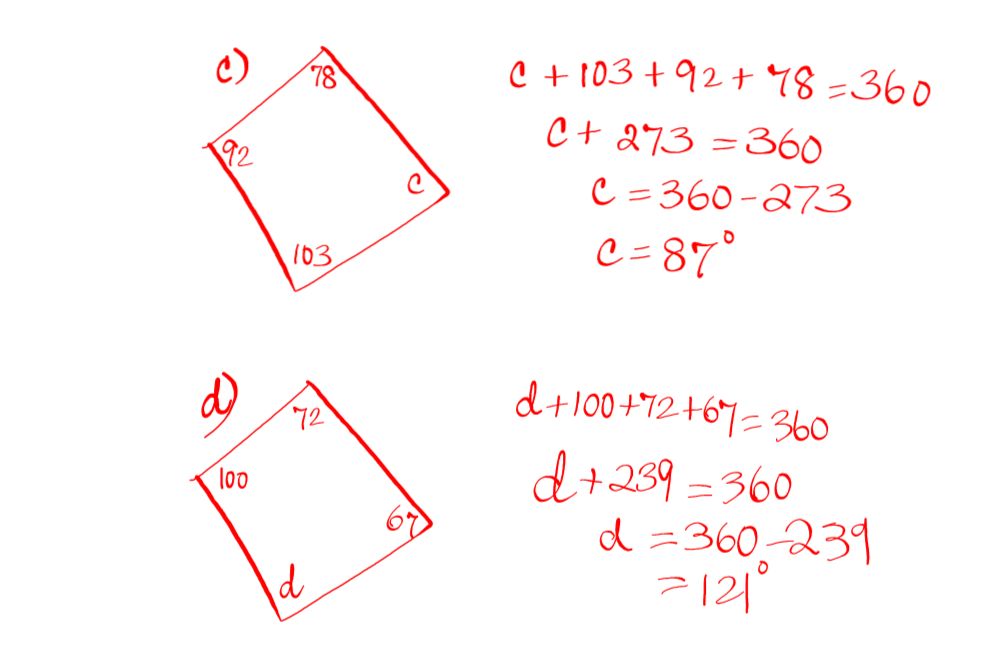 c)
78
92
c
103
c + 103 + 92 + 78 = 360
c + 273 = 360
c = 360 - 273
c = 87°
d)
72
100
67
d
d + 100 + 72 + 67 = 360
d + 239 = 360
d = 360 - 239
= 121°